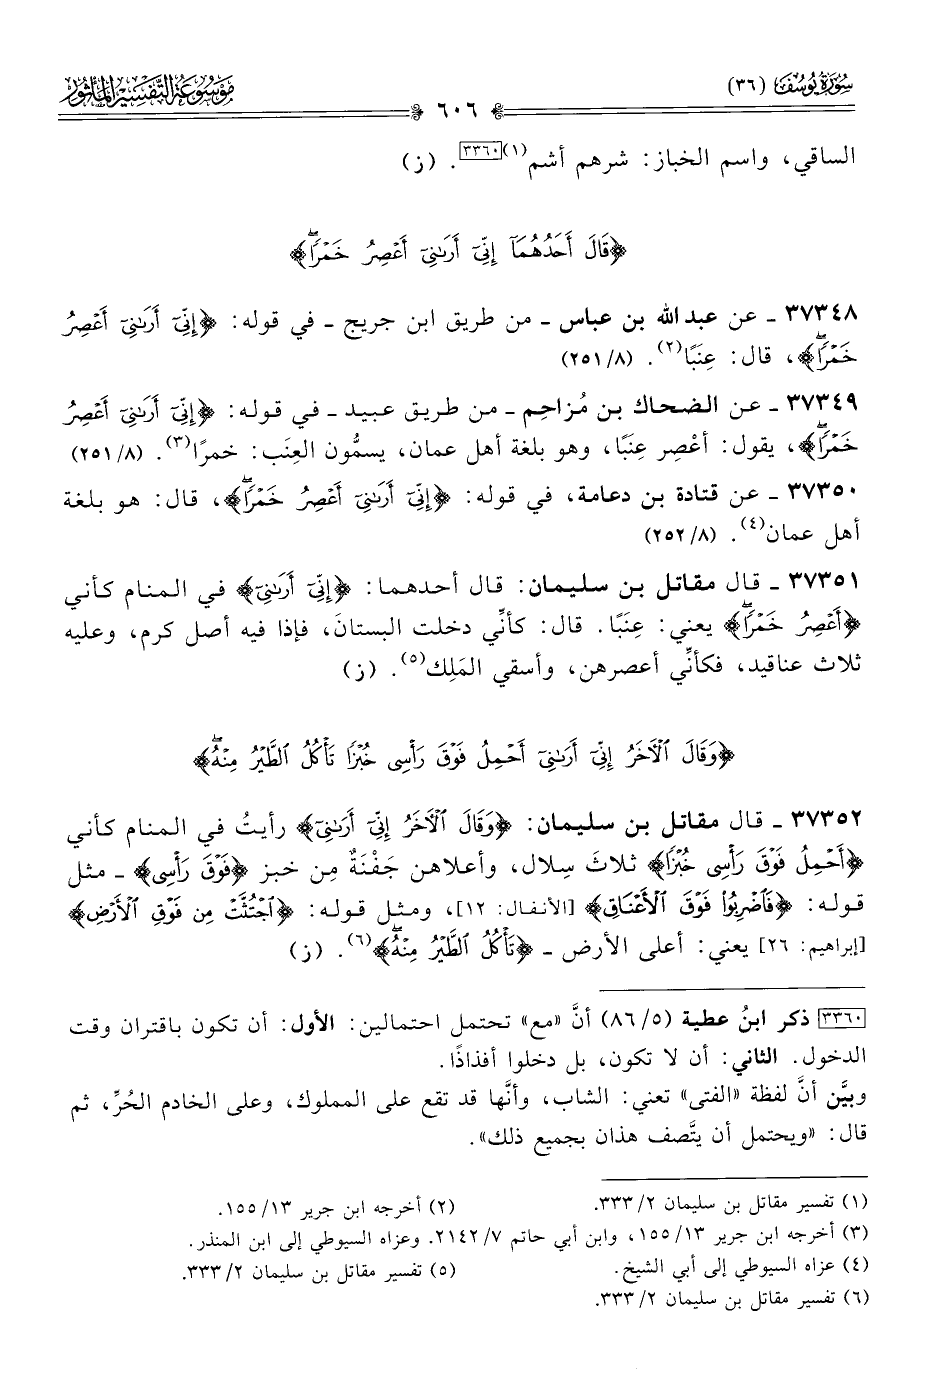 سُورَةُ يُوسُفَ (٣٦)
٦٠٦
مَوْسُوعَةُ التَّفْسِيرِ المَأْثُور
الساقي، واسم الخباز: شرهم أشم(١)[٣٣٦٠]. (ز)
﴿قَالَ أَحَدُهُمَآ إِنِّىٓ أَرَىٰنِىٓ أَعْصِرُ خَمْرًاۖ﴾
٣٧٣٤٨ ـ عن عبد الله بن عباس ـ من طريق ابن جريج ـ في قوله: ﴿إِنِّىٓ أَرَىٰنِىٓ أَعْصِرُ
خَمْرًاۖ﴾، قال: عِنَبًا(٢). (٢٥١/٨)
٣٧٣٤٩ ـ عن الضحاك بن مُزاحِم ـ من طريق عبيد ـ في قوله: ﴿إِنِّىٓ أَرَىٰنِىٓ أَعْصِرُ
خَمْرًاۖ﴾، يقول: أعْصِر عِنَبًا، وهو بلغة أهل عمان، يسمُّون العِنَب: خمرًا(٣). (٢٥١/٨)
٣٧٣٥٠ ـ عن قتادة بن دعامة، في قوله: ﴿إِنِّىٓ أَرَىٰنِىٓ أَعْصِرُ خَمْرًاۖ﴾، قال: هو بلغة
أهل عمان(٤). (٢٥٢/٨)
٣٧٣٥١ ـ قال مقاتل بن سليمان: قال أحدهما: ﴿إِنِّىٓ أَرَىٰنِىٓ﴾ في المنام كأني
﴿أَعْصِرُ خَمْرًاۖ﴾ يعني: عِنَبًا. قال: كأنِّي دخلت البستانَ، فإذا فيه أصل كرم، وعليه
ثلاث عناقيد، فكأنِّي أعصرهن، وأسقي المَلِك(٥). (ز)
﴿وَقَالَ ٱلْأٓخَرُ إِنِّىٓ أَرَىٰنِىٓ أَحْمِلُ فَوْقَ رَأْسِى خُبْزًا تَأْكُلُ ٱلطَّيْرُ مِنْهُۖ﴾
٣٧٣٥٢ ـ قال مقاتل بن سليمان: ﴿وَقَالَ ٱلْأٓخَرُ إِنِّىٓ أَرَىٰنِىٓ﴾ رأيتُ في المنام كأني
﴿أَحْمِلُ فَوْقَ رَأْسِى خُبْزًا﴾ ثلاثَ سِلال، وأعلاهن جَفْنَةٌ مِن خبز ﴿فَوْقَ رَأْسِى﴾ ـ مثل
قوله: ﴿فَٱضْرِبُوا۟ فَوْقَ ٱلْأَعْنَاقِ﴾ [الأنفال: ١٢]، ومثل قوله: ﴿ٱجْتُثَّتْ مِن فَوْقِ ٱلْأَرْضِ﴾
[إبراهيم: ٢٦] يعني: أعلى الأرض ـ ﴿تَأْكُلُ ٱلطَّيْرُ مِنْهُۖ﴾(٦). (ز)
[٣٣٦٠] ذكر ابنُ عطية (٨٦/٥) أنَّ «مع» تحتمل احتمالين: الأول: أن تكون باقتران وقت
الدخول. الثاني: أن لا تكون، بل دخلوا أفذاذًا.
وبيَّن أنَّ لفظة «الفتى» تعني: الشاب، وأنَّها قد تقع على المملوك، وعلى الخادم الحُرِّ، ثم
قال: «ويحتمل أن يتَّصف هذان بجميع ذلك».
(١) تفسير مقاتل بن سليمان ٢/ ٣٣٣. (٢) أخرجه ابن جرير ١٣/ ١٥٥.
(٣) أخرجه ابن جرير ١٣/ ١٥٥، وابن أبي حاتم ٧/ ٢١٤٢. وعزاه السيوطي إلى ابن المنذر.
(٤) عزاه السيوطي إلى أبي الشيخ. (٥) تفسير مقاتل بن سليمان ٢/ ٣٣٣.
(٦) تفسير مقاتل بن سليمان ٢/ ٣٣٣.